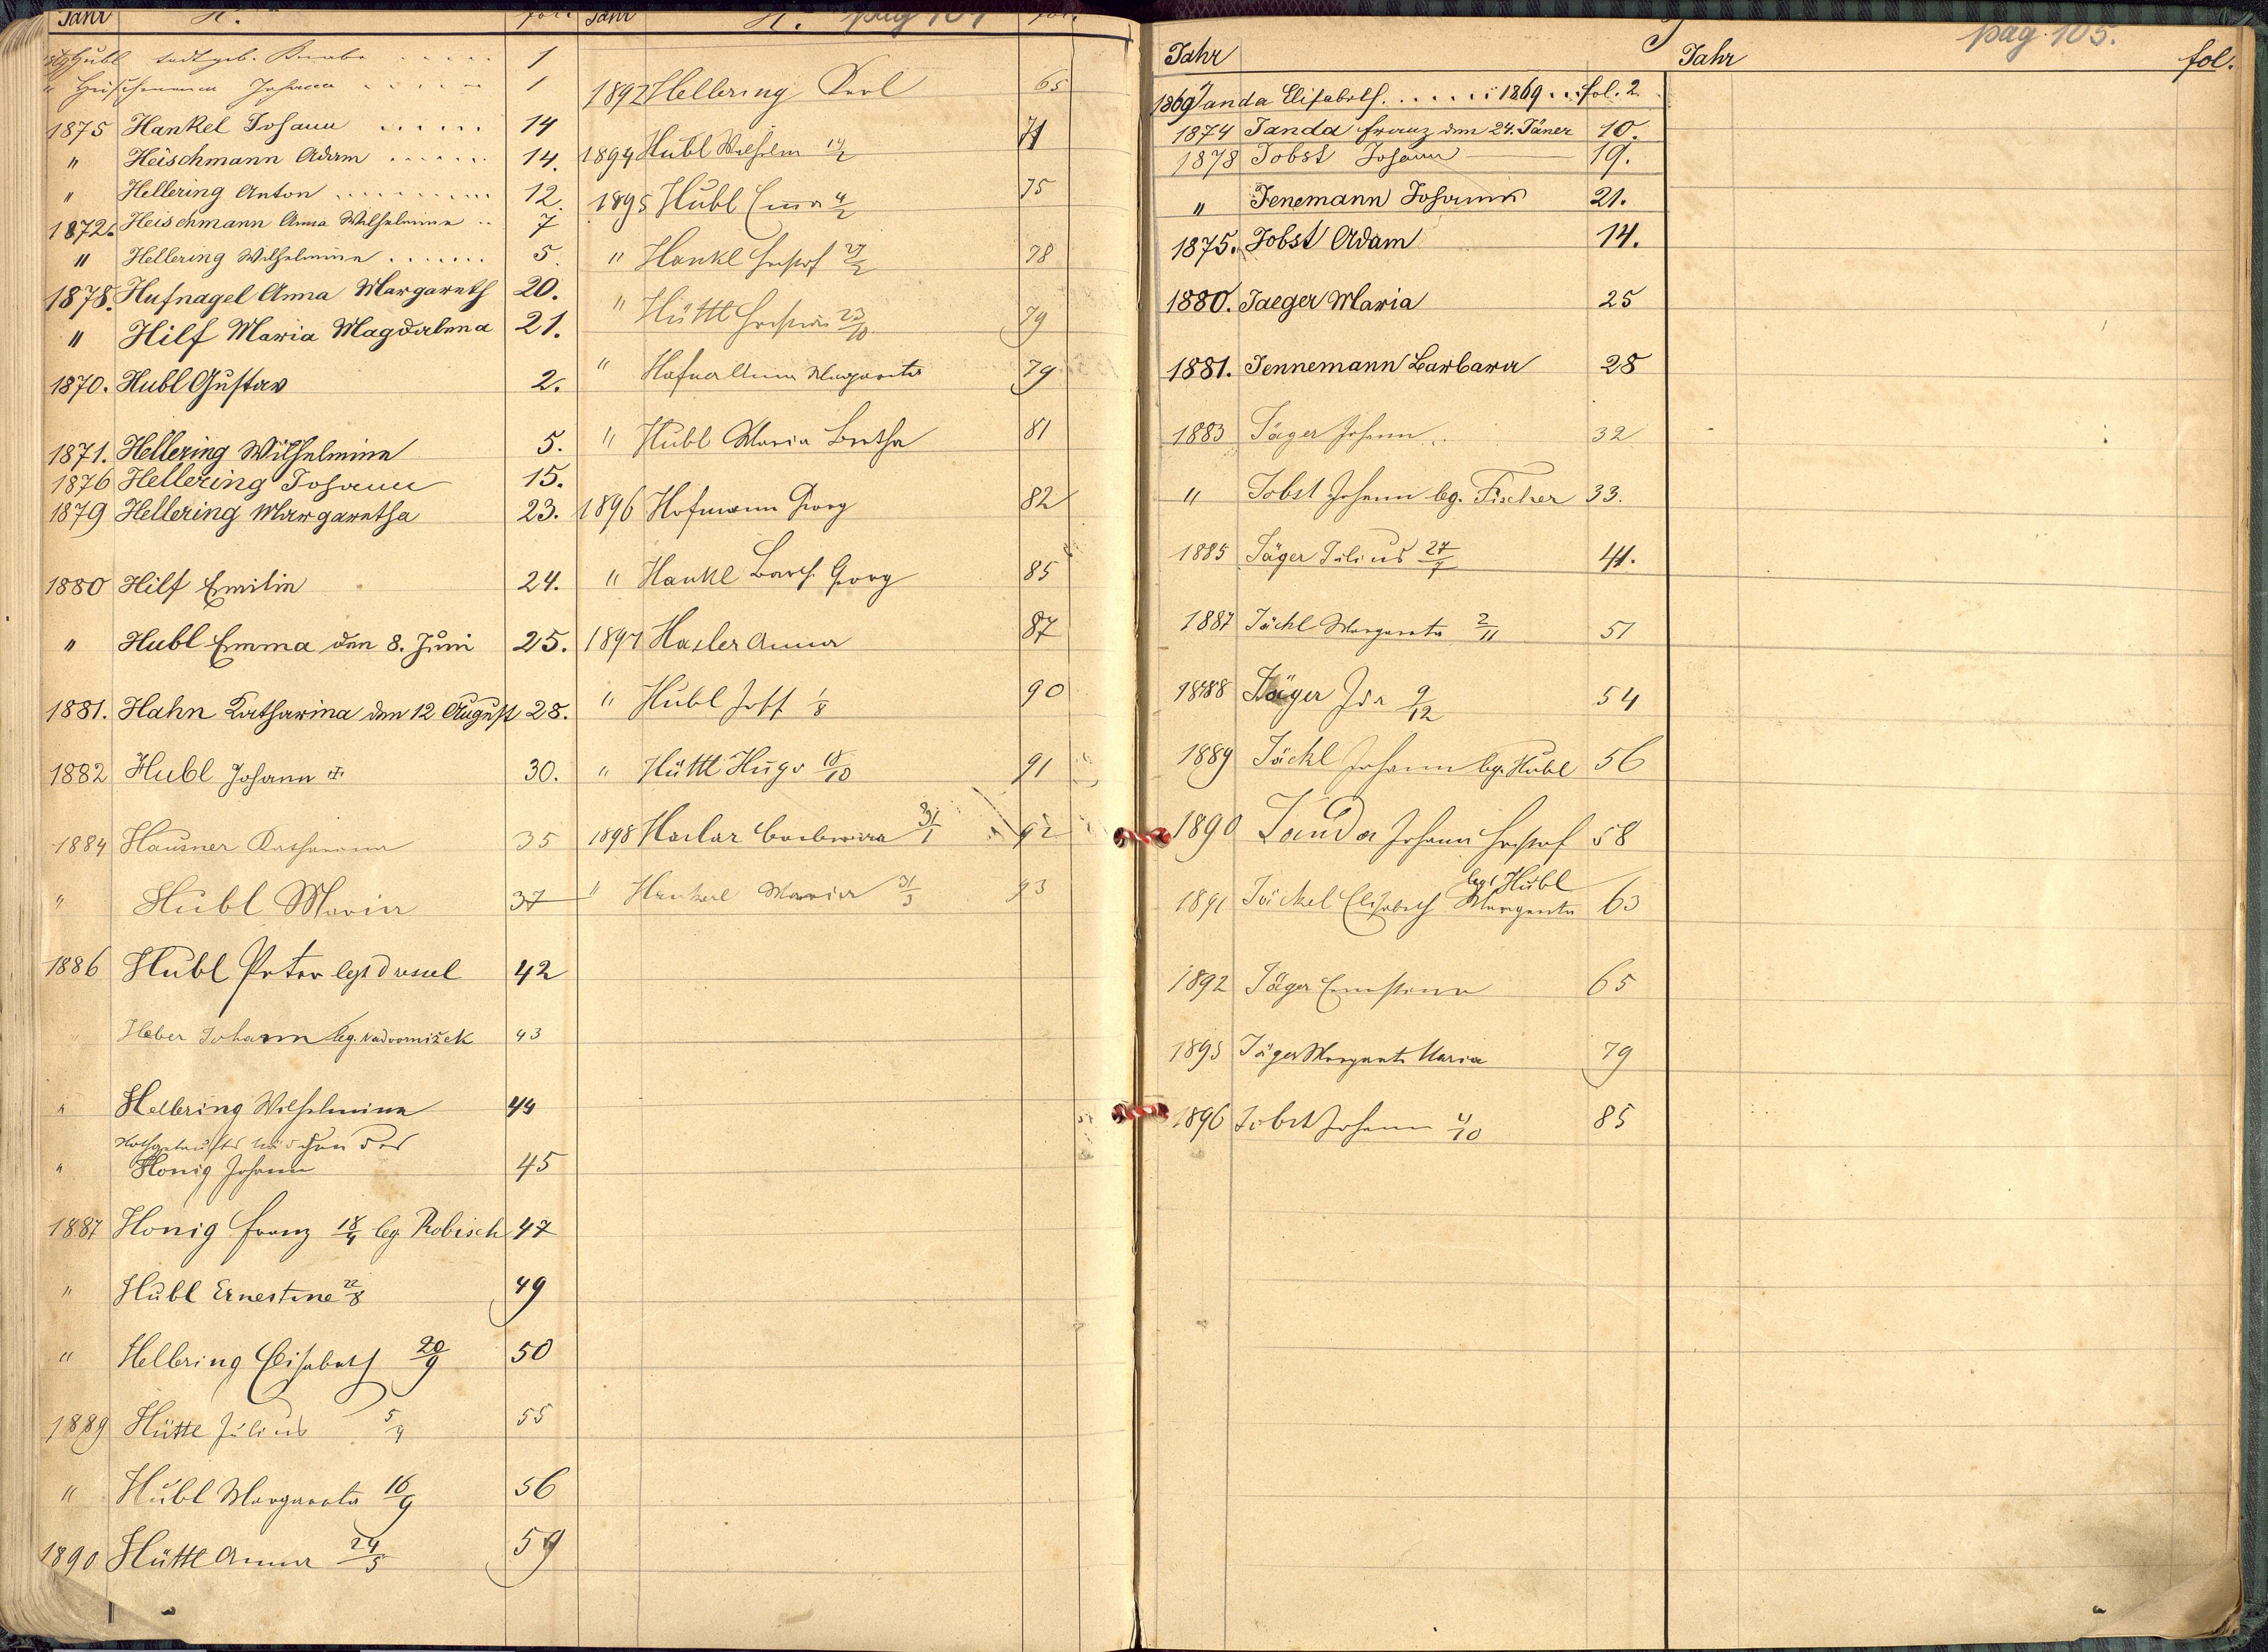 Jahr H. fol.
Hubl todtgeb. Knabe 1
" Heischmann Johann 1
1875 Hankel Johann 14
" Heischmann Adam 14.
" Hellering Anton 12.
1872. Heischmann Anna Wilhelmine 7
" Hellering Wilhelmine 5.
1878. Hufnagel Anna Margareth 20.
" Hilf Maria Magdalena 21.
1870. Hubl Gustav 2.
1871. Hellering Wilhelmine 5.
1876 Hellering Johann 15.
1879 Hellering Margaretha 23.
1880 Hilf Emilie 24.
" Hubl Emma den 8. Juni 25.
1881. Hahn Katharina den 12 August 28.
1882 Hubl Johann 30.
1884 Hausner Katharina 35
" Hubl Maria 37
1886 Hubl Peter legt 42
Heber Johann leg. Nadvornižek 43
" Hellering Wilhelmine 44
Nothgetauftes Mädchen des
" Honig Johann 45
1887 Honig Franz 18/4 leg Robisch 47
" Hubl Ernestine 22/8 49
" Hellering Elisabeth 20/9 50
1889 Hüttl Julius 5/4 55
" Hubl Margareta 16/9 56
1890 Hüttl Anna 24/5 59
Jahr H. pag 104 fol.
1892 Hellering Karl 65
1894 Hubl Wilhelm 14/2 71
1895 Hubl Ema 4/2 75
" Hankl Gustav 27/2 78
" Hüttl 23/10 79
" Hafner Anna Margareta 79
" Hubl Maria Bertha 81
1896 Hofmann Georg 82
" Hankl Barth. Georg 85
1897 Hasler Anna 87
" Hubl Josef 1/8 90
" Hüttl Hugo 18/10 91
1898 Haslar Barbara 31/1 92
" Maria 31/3 93
J pag. 105.
Jahr
1869 Janda Elisabeth. 1869 fol. 2
1874 Janda Franz den 24. Jäner 10.
1878 Jobst Johann 19.
" Jenemann Johann 21.
1875. Jobst Adam 14.
1880. Jaeger Maria 25
1881. Jennemann Barbara 28
1883 Jäger Johann 32
" Jobst Johann leg. Fischer 33.
1885 Jäger Julius 27/7 41.
1887 Jäckl Margareta 2/11 51
1888 Jäger Ida 9/12 54
1889 Jäckl Johann leg. Hubl 56
1890 Janda Johann Gustav 58
legt Hubl
1891 Jäckel Elisabeth Margareta 63
1892 Jäger Ernestine 65
1895 Jäger Margareta Maria 79
1896 Jobst Johann 4/10 85
Jahr fol.